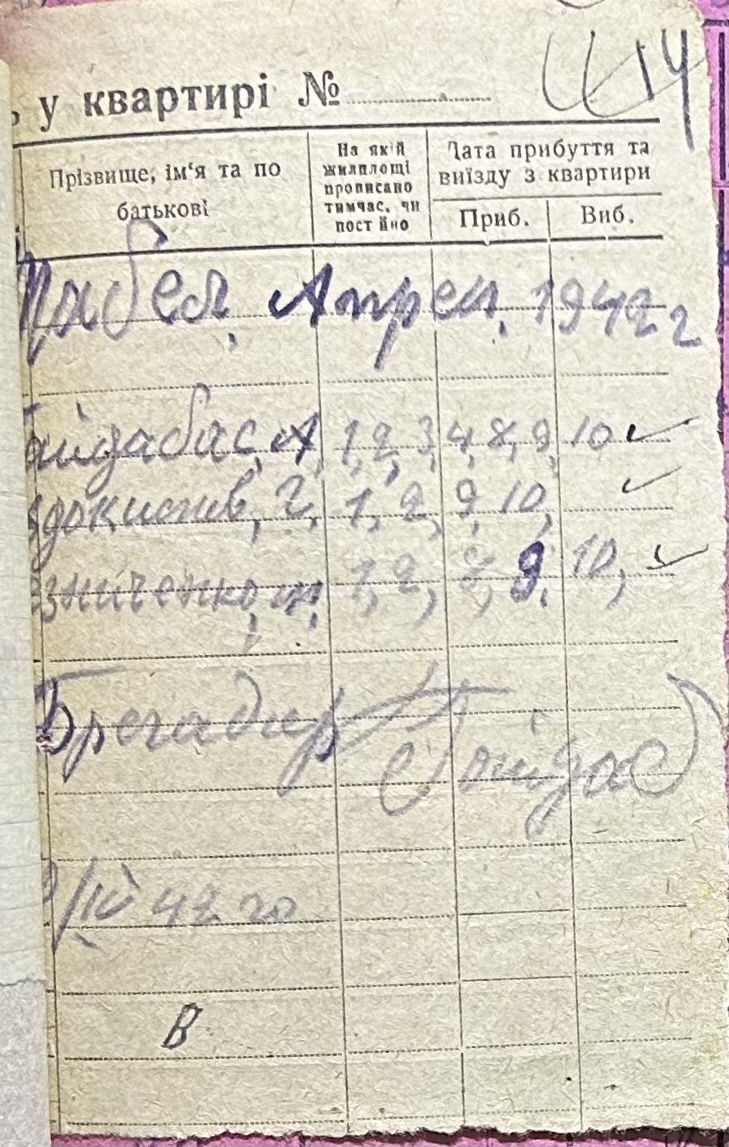 ь у квартирі №
14
Прізвище, ім'я та по батькові
На якій жилплощі прописано тимчас. чи постійно
Дата прибуття та виїзду з квартири
Приб. Виб.
Табеля, Апрел, 1942 г
айдабас, А, 1, 2, 3, 4, 8, 9, 10
вдокимов, Г, 1, 2, 9, 10,
зниченко, и, 1, 2, 8, 9, 10,
Брегадир Гайдаб
/IV 42 го
В